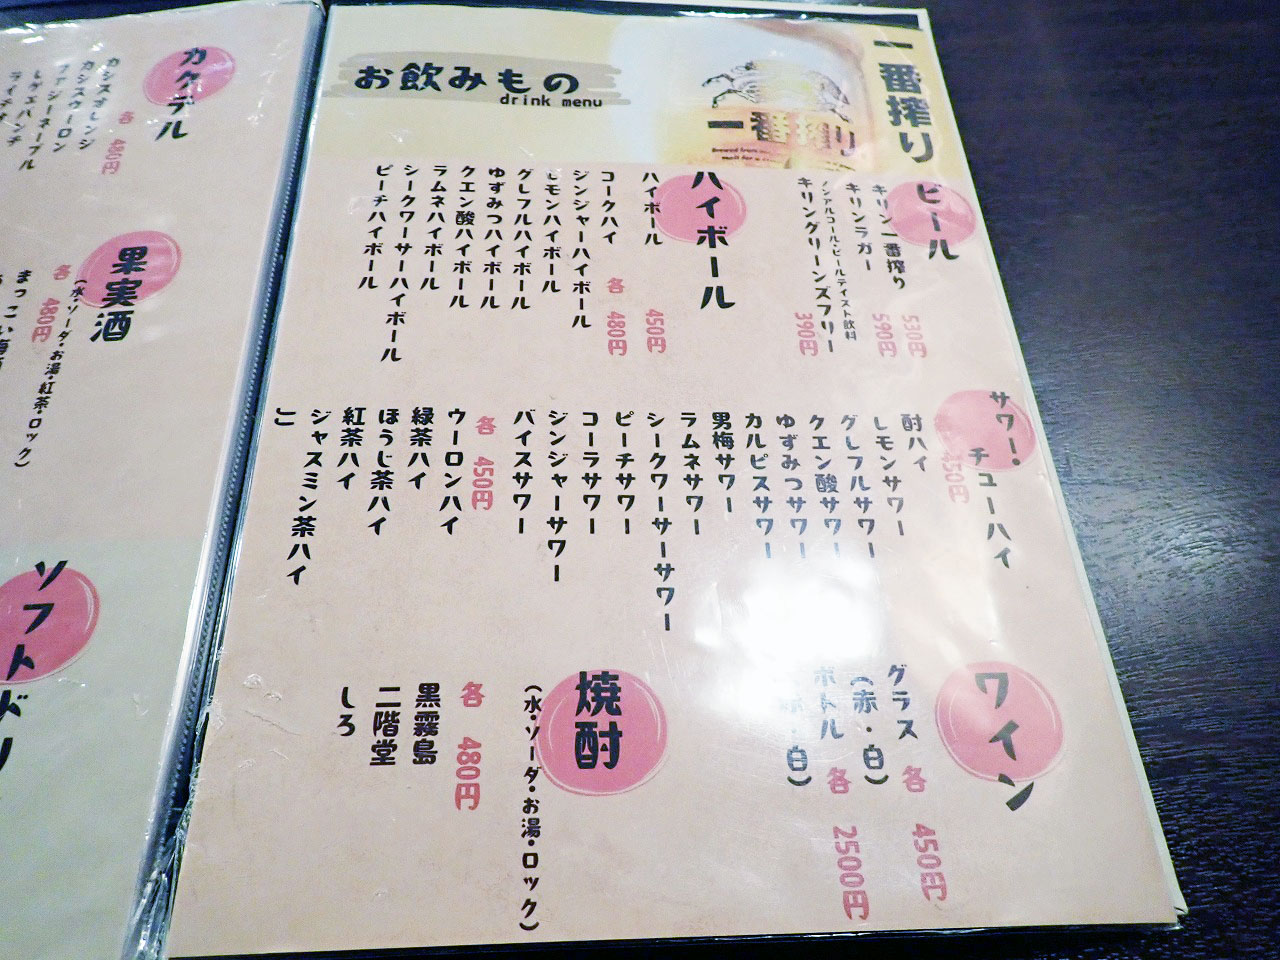 お飲みもの
drink menu
一番搾り
一番搾り
ビール
キリン一番搾り 530円
キリンラガー 590円
ノンアルコール・ビールテイスト飲料
キリングリーンズフリー 390円
ハイボール
ハイボール 450円
各 480円
コークハイ
ジンジャーハイボール
レモンハイボール
グレフルハイボール
ゆずみつハイボール
クエン酸ハイボール
ラムネハイボール
シークワーサーハイボール
ピーチハイボール
サワー・チューハイ
各 450円
酎ハイ
レモンサワー
グレフルサワー
クエン酸サワー
ゆずみつサワー
カルピスサワー
男梅サワー
ラムネサワー
シークワーサーサワー
ピーチサワー
コーラサワー
ジンジャーサワー
バイスサワー
各 450円
ウーロンハイ
緑茶ハイ
ほうじ茶ハイ
紅茶ハイ
ジャスミン茶ハイ
ワイン
グラス
(赤・白) 各 450円
ボトル
(赤・白) 各 2500円
焼酎
(水・ソーダ・お湯・ロック)
各 480円
黒霧島
二階堂
しろ
カクテル
各 480円
カシスオレンジ
カシスウーロン
ファジーネーブル
レゲエパンチ
果実酒
(水・ソーダ・お湯・紅茶・ロック)
各 480円
まっこい梅酒
ソフトドリ